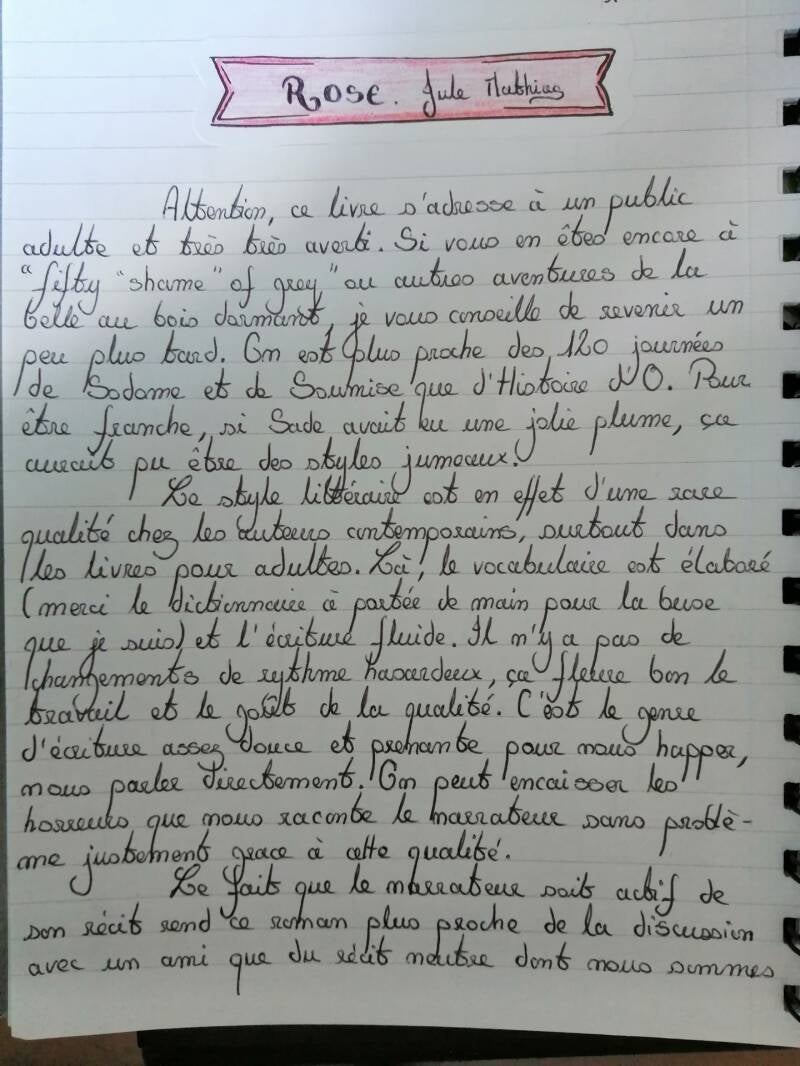 ROSE. Jule Mathias
Attention, ce livre s'adresse à un public
adulte et très très averti. Si vous en êtes encore à
"fifty "shame" of grey" ou autres aventures de la
belle au bois dormant, je vous conseille de revenir un
peu plus tard. On est plus proche des 120 journées
de Sodome et de Soumise que d'Histoire d'O. Pour
être franche, si Sade avait eu une jolie plume, ça
aurait pu être des styles jumeaux.
Le style littéraire est en effet d'une rare
qualité chez les auteurs contemporains, surtout dans
les livres pour adultes. Là, le vocabulaire est élaboré
(merci le dictionnaire à portée de main pour la buse
que je suis) et l'écriture fluide. Il n'y a pas de
changements de rythme hasardeux, ça fleure bon le
travail et le goût de la qualité. C'est le genre
d'écriture assez douce et prenante pour nous happer,
nous parler directement. On peut encaisser les
horreurs que nous raconte le narrateur sans problè-
me justement grace à cette qualité.
Le fait que le narrateur soit actif de
son récit rend ce roman plus proche de la discussion
avec un ami que du récit neutre dont nous sommes